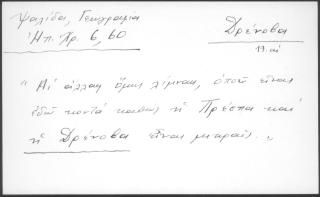 Ψαλίδα, Γεωγραφία
Ἠπ. Χρ. 6, 60
Δρένοβα
19. αἰ
"Αἱ ἄλλαι ὅμως λίμναι, ὁποῦ εἶναι
ἐδῶ κοντά καθώς ἡ Πρέσπα καί
ἡ Δρένοβα εἶναι μικραί. "